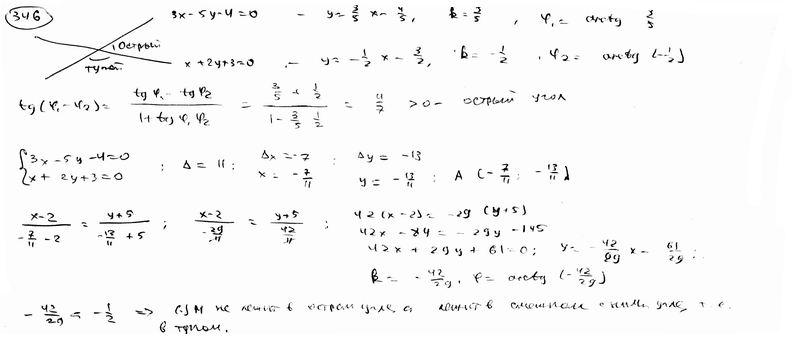 346
3x-5y-4=0 - y=3/5 x-4/5, k=3/5, φ₁= arctg 3/5
Острый
тупой
x+2y+3=0 - y=-1/2 x-3/2, k=-1/2, φ₂= arctg (-1/2)
tg(φ₁-φ₂)= (tgφ₁-tgφ₂)/(1+tgφ₁φ₂) = (3/5+1/2)/(1-3/5 1/2) = 11/7 >0- острый угол
{3x-5y-4=0 ; Δ=11; Δx=-7 ; Δy=-13
x+2y+3=0 x=-7/11 y=-13/11 ; A (-7/11; -13/11)
(x-2)/(-7/11-2) = (y+5)/(-13/11+5) ; (x-2)/(-29/11) = (y+5)/(42/11) ; 42(x-2)=-29(y+5)
42x-84=-29y-145
42x+29y+61=0; y=-42/29 x-61/29;
k=-42/29, φ=arctg(-42/29)
-42/29 = -1/2 => M не лежит в остром угле, а лежит в смежном с ним угле, т.е.
в тупом.